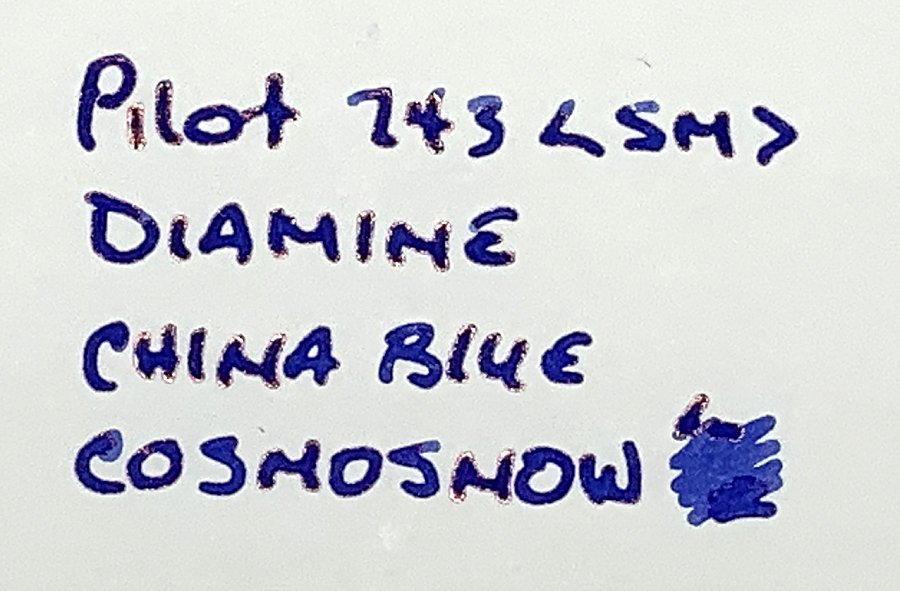 Pilot 743 <SM>
DIAMINE
CHINA BlUE
COSMOSNOW